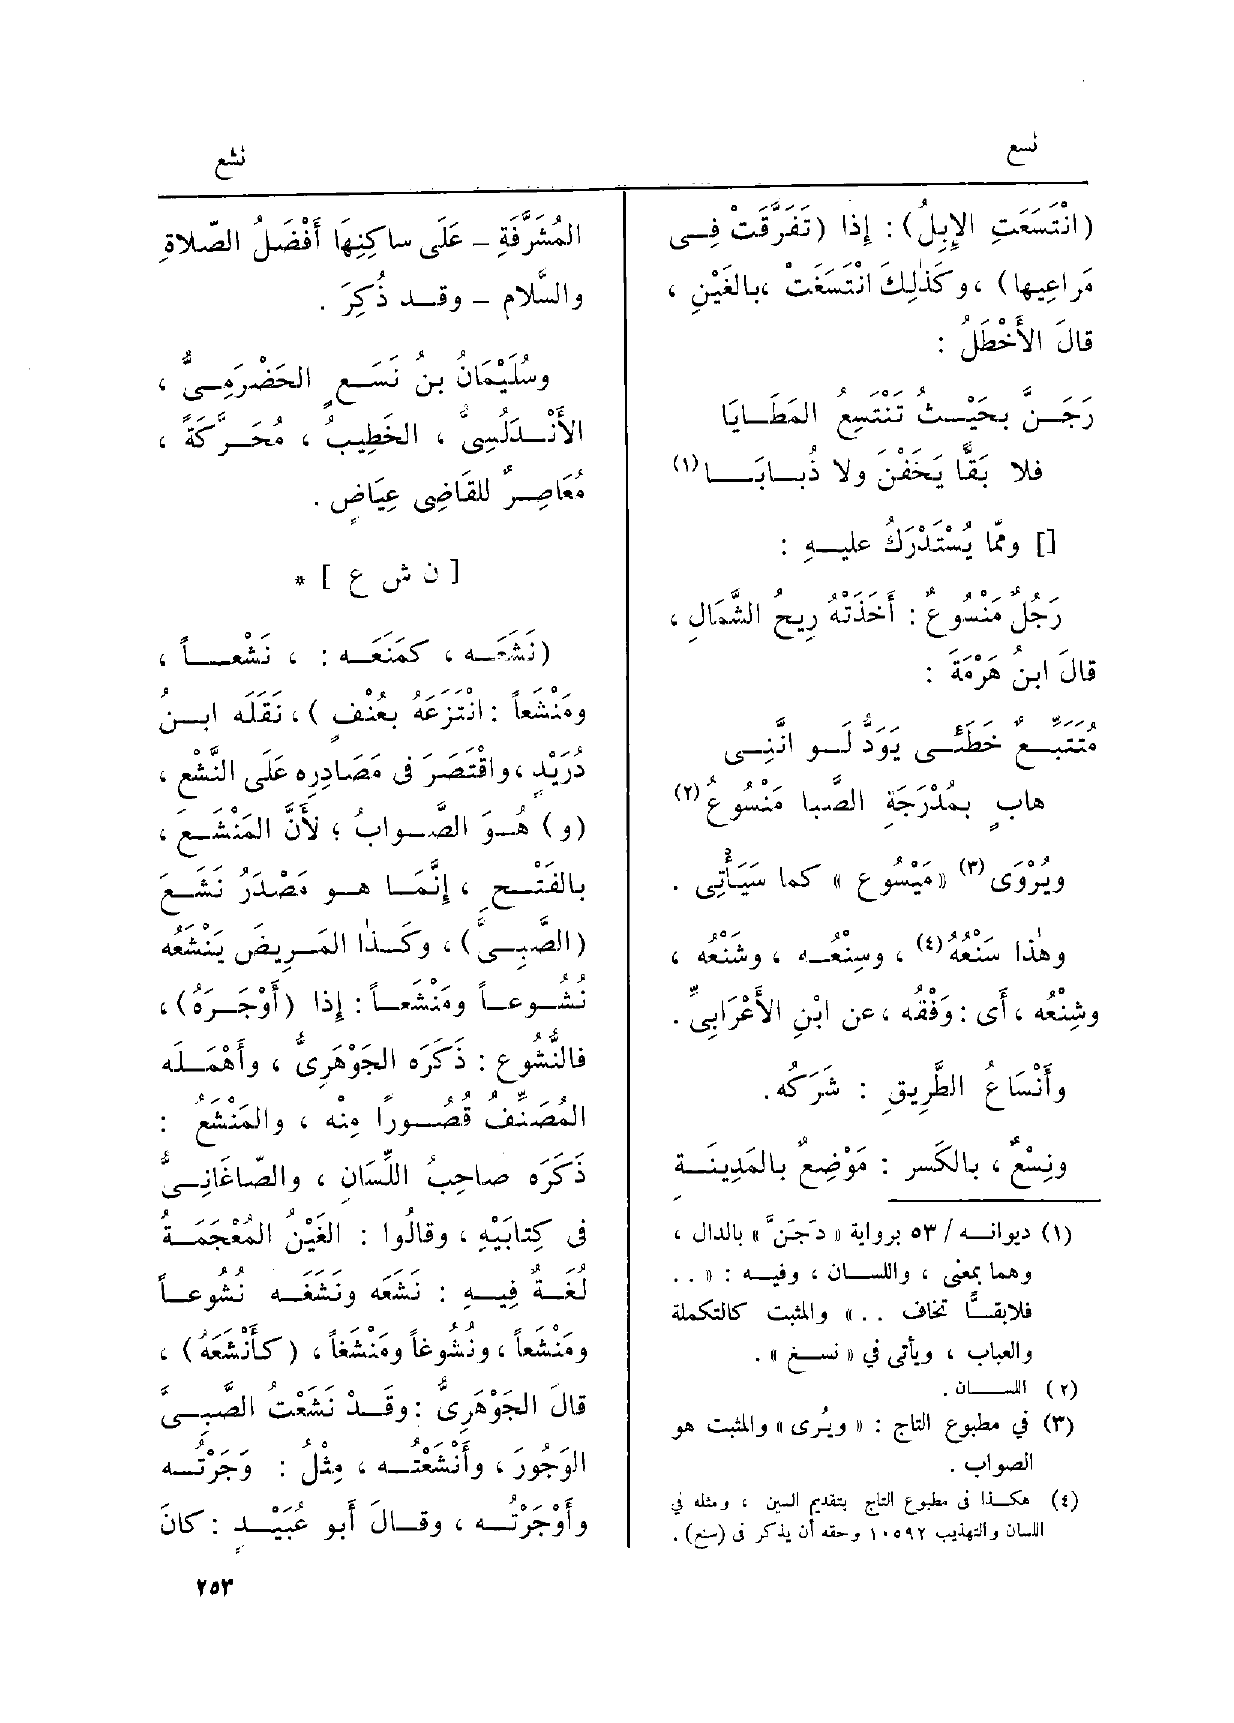 نسع
نشع
(انْتَسَعَتِ الإِبِلُ): إِذا (تَفَرَّقَتْ فِى
مَراعِيها) ، وكَذٰلِكَ انْتَسَغَتْ ، بالغَيْنِ ،
قالَ الأَخْطَلُ :
رَجَنَّ بحَيْثُ تَنْتَسِعُ المَطَايَا
فلا بَقًّا يَخَفْنَ ولا ذُبابَا (١)
[] وممّا يُسْتَدْرَكُ عليه :
رَجُلٌ مَنْسُوعٌ : أَخَذَتْهُ رِيحُ الشَّمَالِ ،
قالَ ابنُ هَرْمَةَ :
مُتَتَبِّعٌ خَطَئِى يَوَدُّ لَو انَّنِى
هابٍ بمُدْرَجَةِ الصَّبا مَنْسُوعُ (٢)
ويُرْوَى (٣) « مَيْسُوع » كما سَيَأْتِى .
وهٰذا سَنْعُهُ (٤) ، وسِنْعُه ، وشَنْعُه ،
وشِنْعُه ، أَى : وَفْقُه ، عن ابْنِ الأَعْرَابِىِّ .
وأَنْسَاعُ الطَّرِيقِ : شَرَكُه .
ونِسْعٌ ، بالكَسر : مَوْضِعٌ بالمَدِينَةِ
(١) ديوانه / ٥٣ برواية « دَجَنَّ » بالدال ،
وهما بمعنى ، واللسان ، وفيه : « ..
فلابقًّا تخاف .. » والمثبت كالتكملة
والعباب ، ويأتى في « نسغ » .
(٢) اللسان .
(٣) في مطبوع التاج : « ويُرى » والمثبت هو
الصواب .
(٤) هكذا فى مطبوع التاج بتقديم السين ، ومثله في
اللسان والتهذيب ١٠٥٩٢ وحقه أن يذكر فى (سنع) .
المُشَرَّفَةِ – عَلَى ساكِنِهَا أَفْضَلُ الصّلاةِ
والسَّلامِ – وقد ذُكِرَ .
وسُلَيْمَانُ بنُ نَسَعٍ الحَضْرَمِىُّ ،
الأَنْدَلُسِىُّ ، الخَطِيبُ ، مُحَرَّكَةً ،
مُعَاصِرٌ للقَاضِى عِيَاضٍ .
[ ن ش ع ] *
(نَشَعَه ، كمَنَعَه : ، نَشْعاً ،
ومَنْشَعاً : انْتَزَعَهُ بعُنْفٍ ) ، نَقَلَه ابنُ
دُرَيْدٍ ، واقْتَصَرَ فى مَصَادِرِه عَلَى النَّشْعِ ،
(و) هُوَ الصَّوابُ ؛ لأَنَّ المَنْشَعَ ،
بالفَتْحِ ، إِنَّمَا هو مَصْدَرُ نَشَعَ
(الصَّبِىَّ) ، وكَذٰا المَرِيضَ يَنْشَعُه
نُشُوعاً ومَنْشَعاً : إِذا (أَوْجَرَهُ) ،
فالنُّشُوع : ذَكَرَه الجَوْهَرِىُّ ، وأَهْمَلَه
المُصَنِّفُ قُصُورًا مِنْه ، والمَنْشَع :
ذَكَرَه صاحِبُ اللِّسَانِ ، والصّاغَانِىُّ
فى كِتابَيْهِ ، وقالُوا : الغَيْنُ المُعْجَمَةُ
لُغَةٌ فِيهِ : نَشَعَه ونَشَغَه نُشُوعاً
ومَنْشَعاً ، ونُشُوغاً ومَنْشَغاً ، (كأَنْشَعَهُ) ،
قالَ الجَوْهَرِىُّ : وقَدْ نَشَعْتُ الصَّبِىَّ
الوَجُورَ ، وأَنْشَعْتُه ، مِثْلُ : وَجَرْتُه
وأَوْجَرْتُه ، وقالَ أَبو عُبَيْدٍ : كانَ
٢٥٣